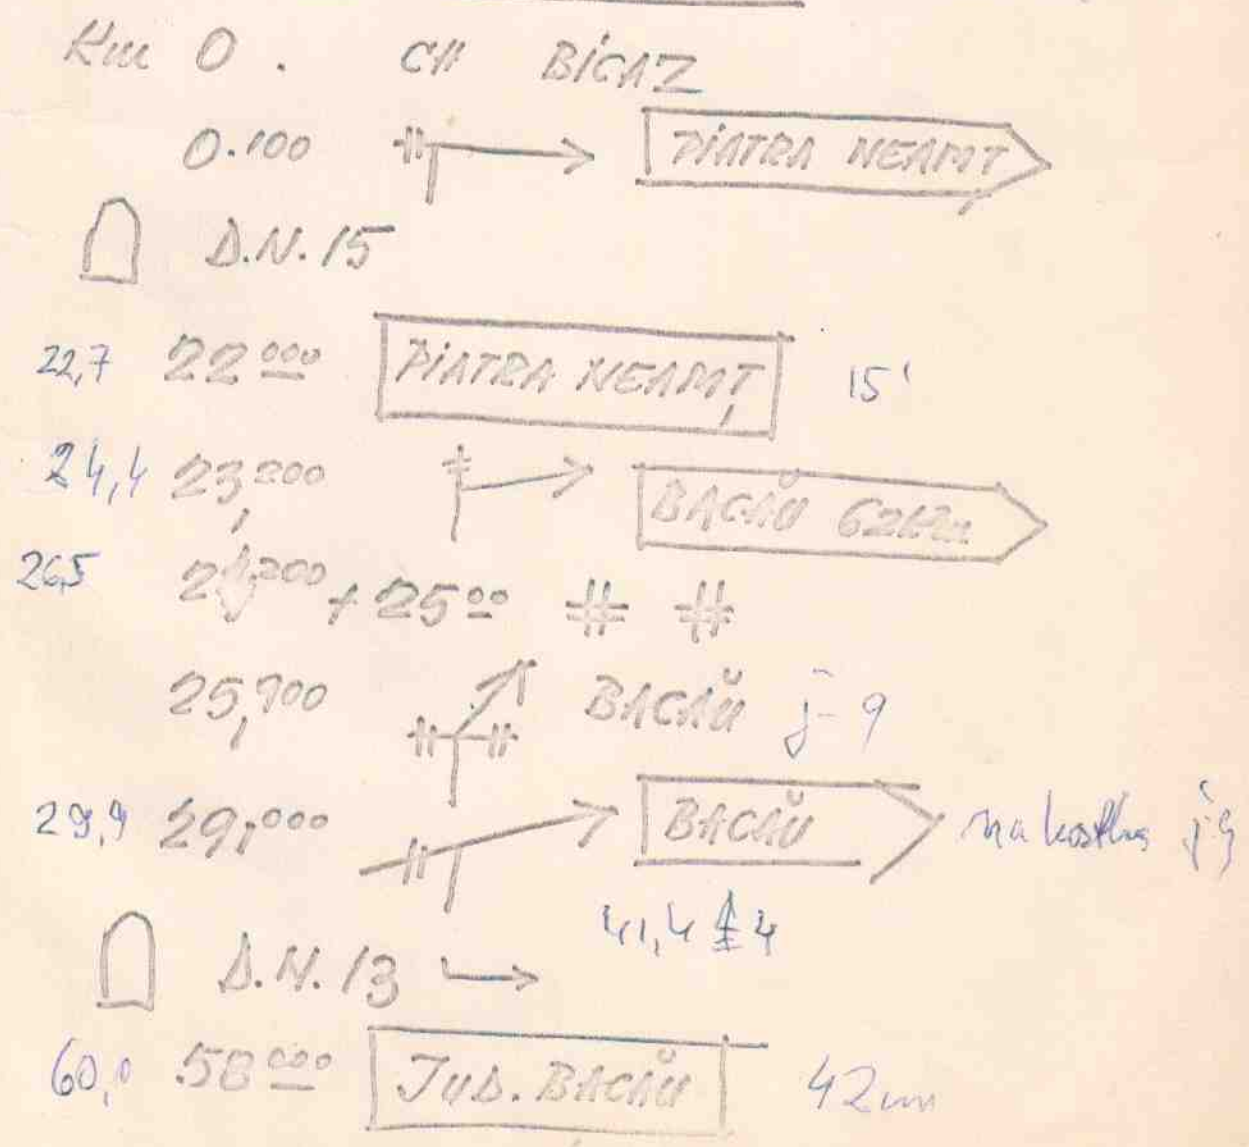 Km 0. CH BICAZ
0.100 PIATRA NEAMȚ
D.N. 15
22,7 22 000 PIATRA NEAMȚ 15'
24,4 23,200 BACĂU 62 Km
26,5 + 25 00
25,900 BACĂU j-9
29,9 29,000 BACĂU na
41,4
D.N. 13
60,0 58 000 JUD. BACĂU 42